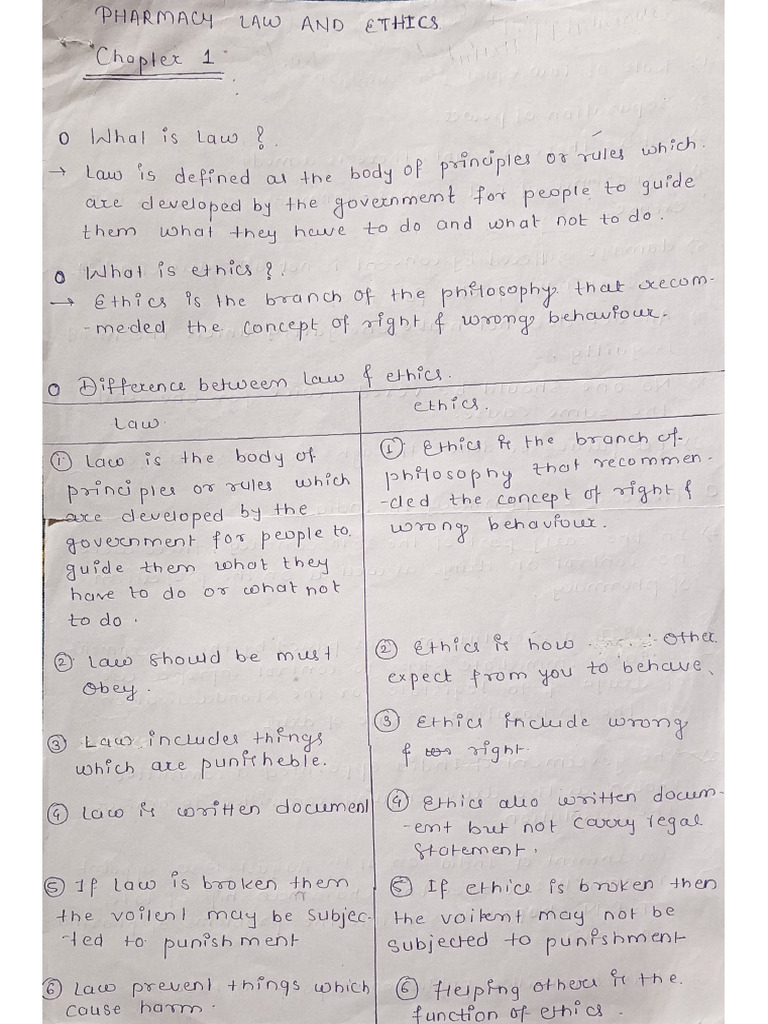 PHARMACY LAW AND ETHICS
Chapter 1
O What is Law ?
→ Law is defined as the body of principles or rules which
are developed by the government for people to guide
them what they have to do and what not to do.
O What is ethics ?
→ Ethics is the branch of the philosophy that recom-
-meded the concept of right & wrong behaviour.
O Difference between law & ethics.
Law
ethics.
① Law is the body of
principles or rules which
are developed by the
government for people to
guide them what they
have to do or what not
to do.
① Ethics is the branch of
philosophy that recommen-
-ded the concept of right &
wrong behaviour.
② Law should be must
Obey.
② Ethics is how other
expect from you to behave.
③ Law includes things
which are punisheble.
③ Ethics include wrong
& right.
④ Law is written document
④ Ethics also written docum-
-ent but not carry legal
statement.
⑤ If law is broken them
the voilent may be subjec-
-ted to punishment
⑤ If ethice is broken then
the voilent may not be
subjected to punishment
⑥ Law prevent things which
cause harm.
⑥ Helping others is the
function of ethics.